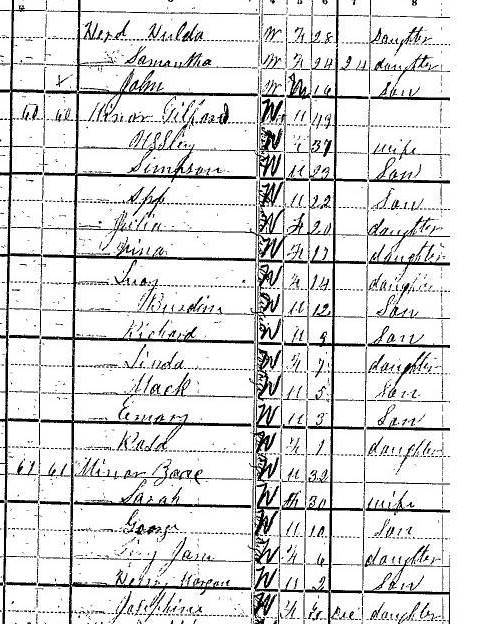 8
Herd Hulda W F 28 daughter
Samantha W F 24 24 daughter
John W M 16 Son
60 60 Minor Gilford W M 49
W F 37 wife
Simpson W M 23 Son
W M 22 Son
W F 20 daughter
W F 17 daughter
Lucy W F 14 daughter
W M 12 Son
Richard W M 9 Son
Linda W F 7 daughter
Mack W M 5 Son
Emory W M 3 Son
W F 1 daughter
61 61 Minor W M 32
Sarah W F 30 wife
George W M 10 Son
Jane W F 6 daughter
Henry Morgan W M 2 Son
Josephine W F Dec daughter